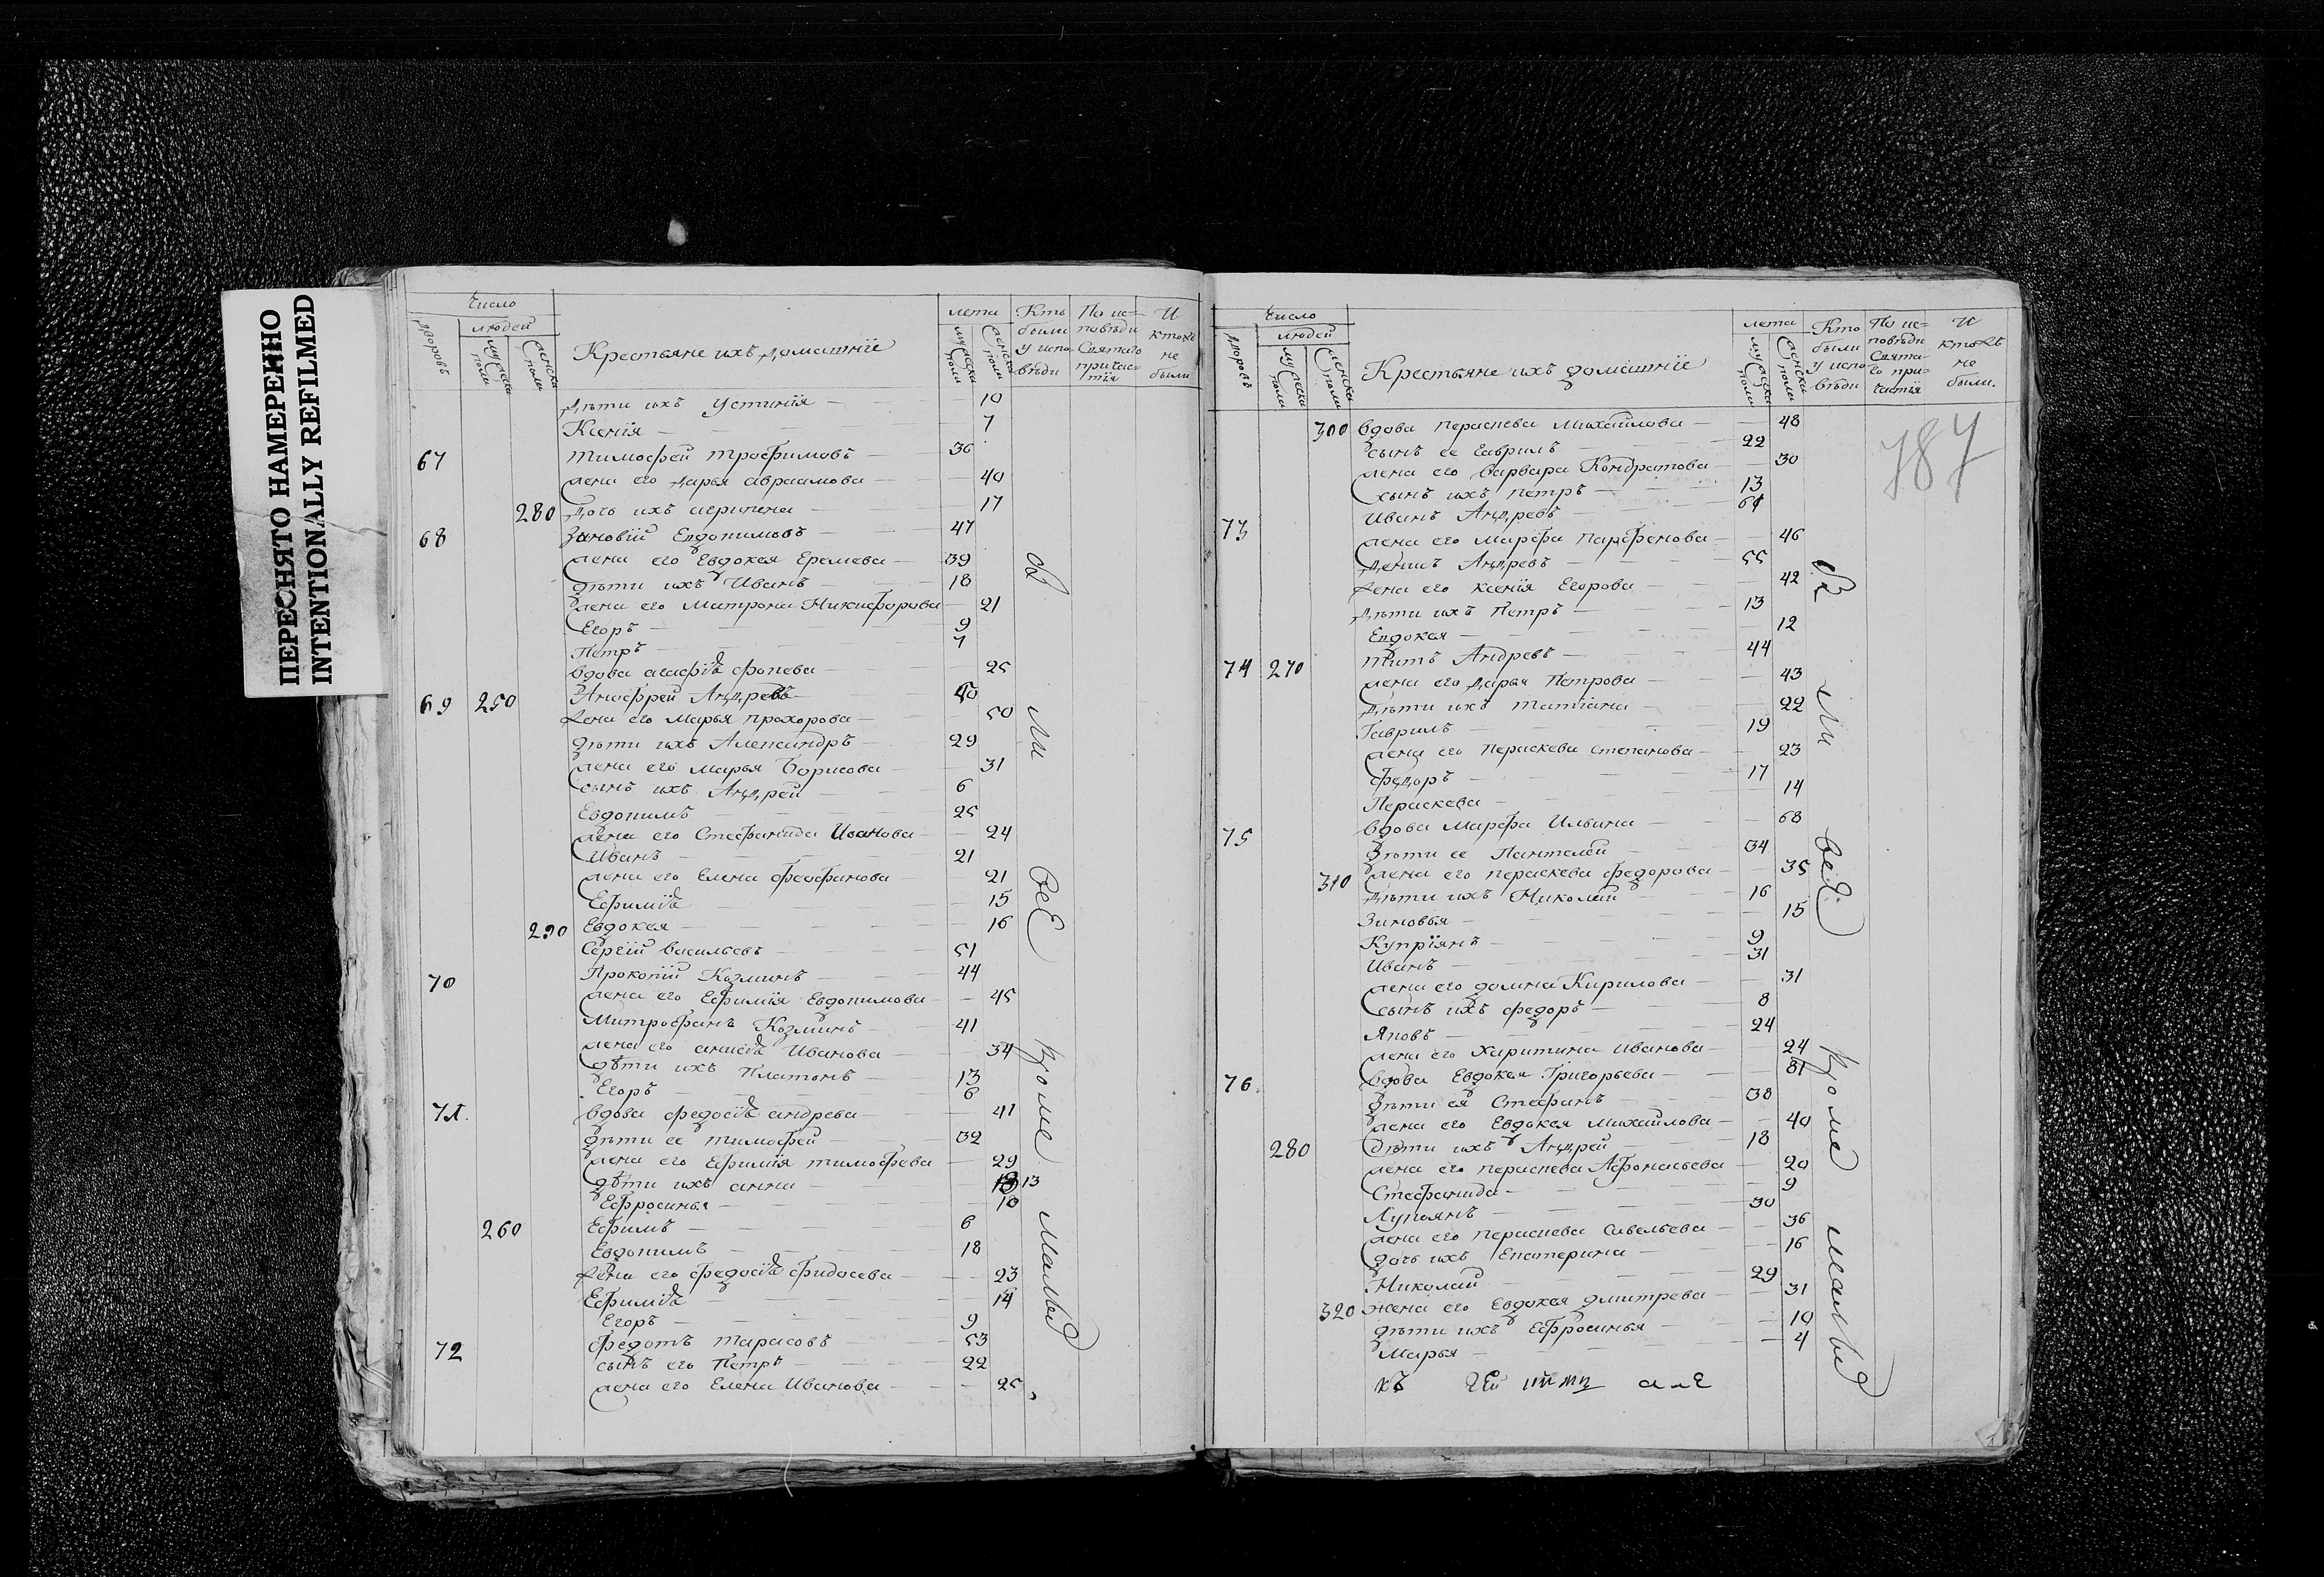 ПЕРЕСНЯТО НАМЕРЕННО
INTENTIONALLY REFILMED
Число
людей
дворовъ
Крестьяне ихъ домашніе
лета
Кто были у исповѣди
По исповѣди Святаго причастія
И кто же не были
дѣти ихъ Устинія 10
Ксенія 7
67 Тимофей Трофимовъ 36
жена его Дарья Авраамова 40
280 Дочь ихъ Агрипена 17
68 Зиновій Евдокимовъ 47
жена его Евдокея Еремева 39
дѣти ихъ Иванъ 18
жена его Матрона Никифорова 21
Егоръ 9
Петръ 7
Вдова Агафіѣ Фокева 25
69 250 Анофрей Андревъ 50
жена его Марья Прохорова 50
дѣти ихъ Александръ 29
жена его Марья Борисова 31
сынъ ихъ Андрей 6
Евдокимъ 25
жена его Стефанида Иванова 24
Иванъ 21
жена его Елена Феофанова 21
Ефиміѣ 15
290 Евдокея 16
Сергій Васильевъ 51
70 Прокопій Козминъ 44
жена его Ефимія Евдокимова 45
Митрофанъ Козминъ 41
жена его Анисіѣ Иванова 34
дѣти ихъ Платонъ 13
Егоръ 6
71. Вдова Федосіѣ Андрева 41
дѣти ее Тимофей 32
жена его Ефимія Тимофева 29
дѣти ихъ Анна 13
Ефросинья 10
260 Ефимъ 6
Евдокимъ 18
жена его Федосіѣ Фидосева 23
Ефиміѣ 14
Егоръ 9
72 Федотъ Тарасовъ 53
сынъ его Петръ 22
жена его Елена Иванова 25
Число
людей
дворовъ
Крестьяне ихъ домашніе
лета
Кто были у исповѣди
По исповѣди Святаго причастія
И кто же не были.
787
300 Вдова Пераскева Михайлова 48
сынъ ее Гаврилъ 22
жена его Варвара Кондратова 30
сынъ ихъ Петръ 13
73 Иванъ Андревъ 61
жена его Марфа Парфенова 46
Денисъ Андревъ 55
жена его Ксенія Егорова 42
дѣти ихъ Петръ 13
Евдокея 12
74 270 Титъ Андревъ 44
жена его Дарья Петрова 43
дѣти ихъ Татіана 22
Гаврилъ 19
жена его Пераскева Степанова 23
Федоръ 17
Пераскева 14
75 Вдова Марфа Ильина 68
дѣти ее Пантелей 34
310 жена его Пераскева Федорова 35
дѣти ихъ Николай 16
Зиновья 15
Купріянъ 9
Иванъ 31
жена его Домна Кирилова 31
сынъ ихъ Федоръ 8
Яковъ 24
жена его Харитина Иванова 24
76 Вдова Евдокея Григорьева 81
дѣти ея Стефанъ 38
жена его Евдокея Михайлова 40
280 дѣти ихъ Андрей 18
жена его Пераскева Афонасьева 20
Стефанида 9
Лукьянъ 30
жена его Пераскева Савельева 36
дочь ихъ Екатерина 16
Николай 29
320 жена его Евдокея Дмитрева 31
дѣти ихъ Ефросинья 10
Марья 4